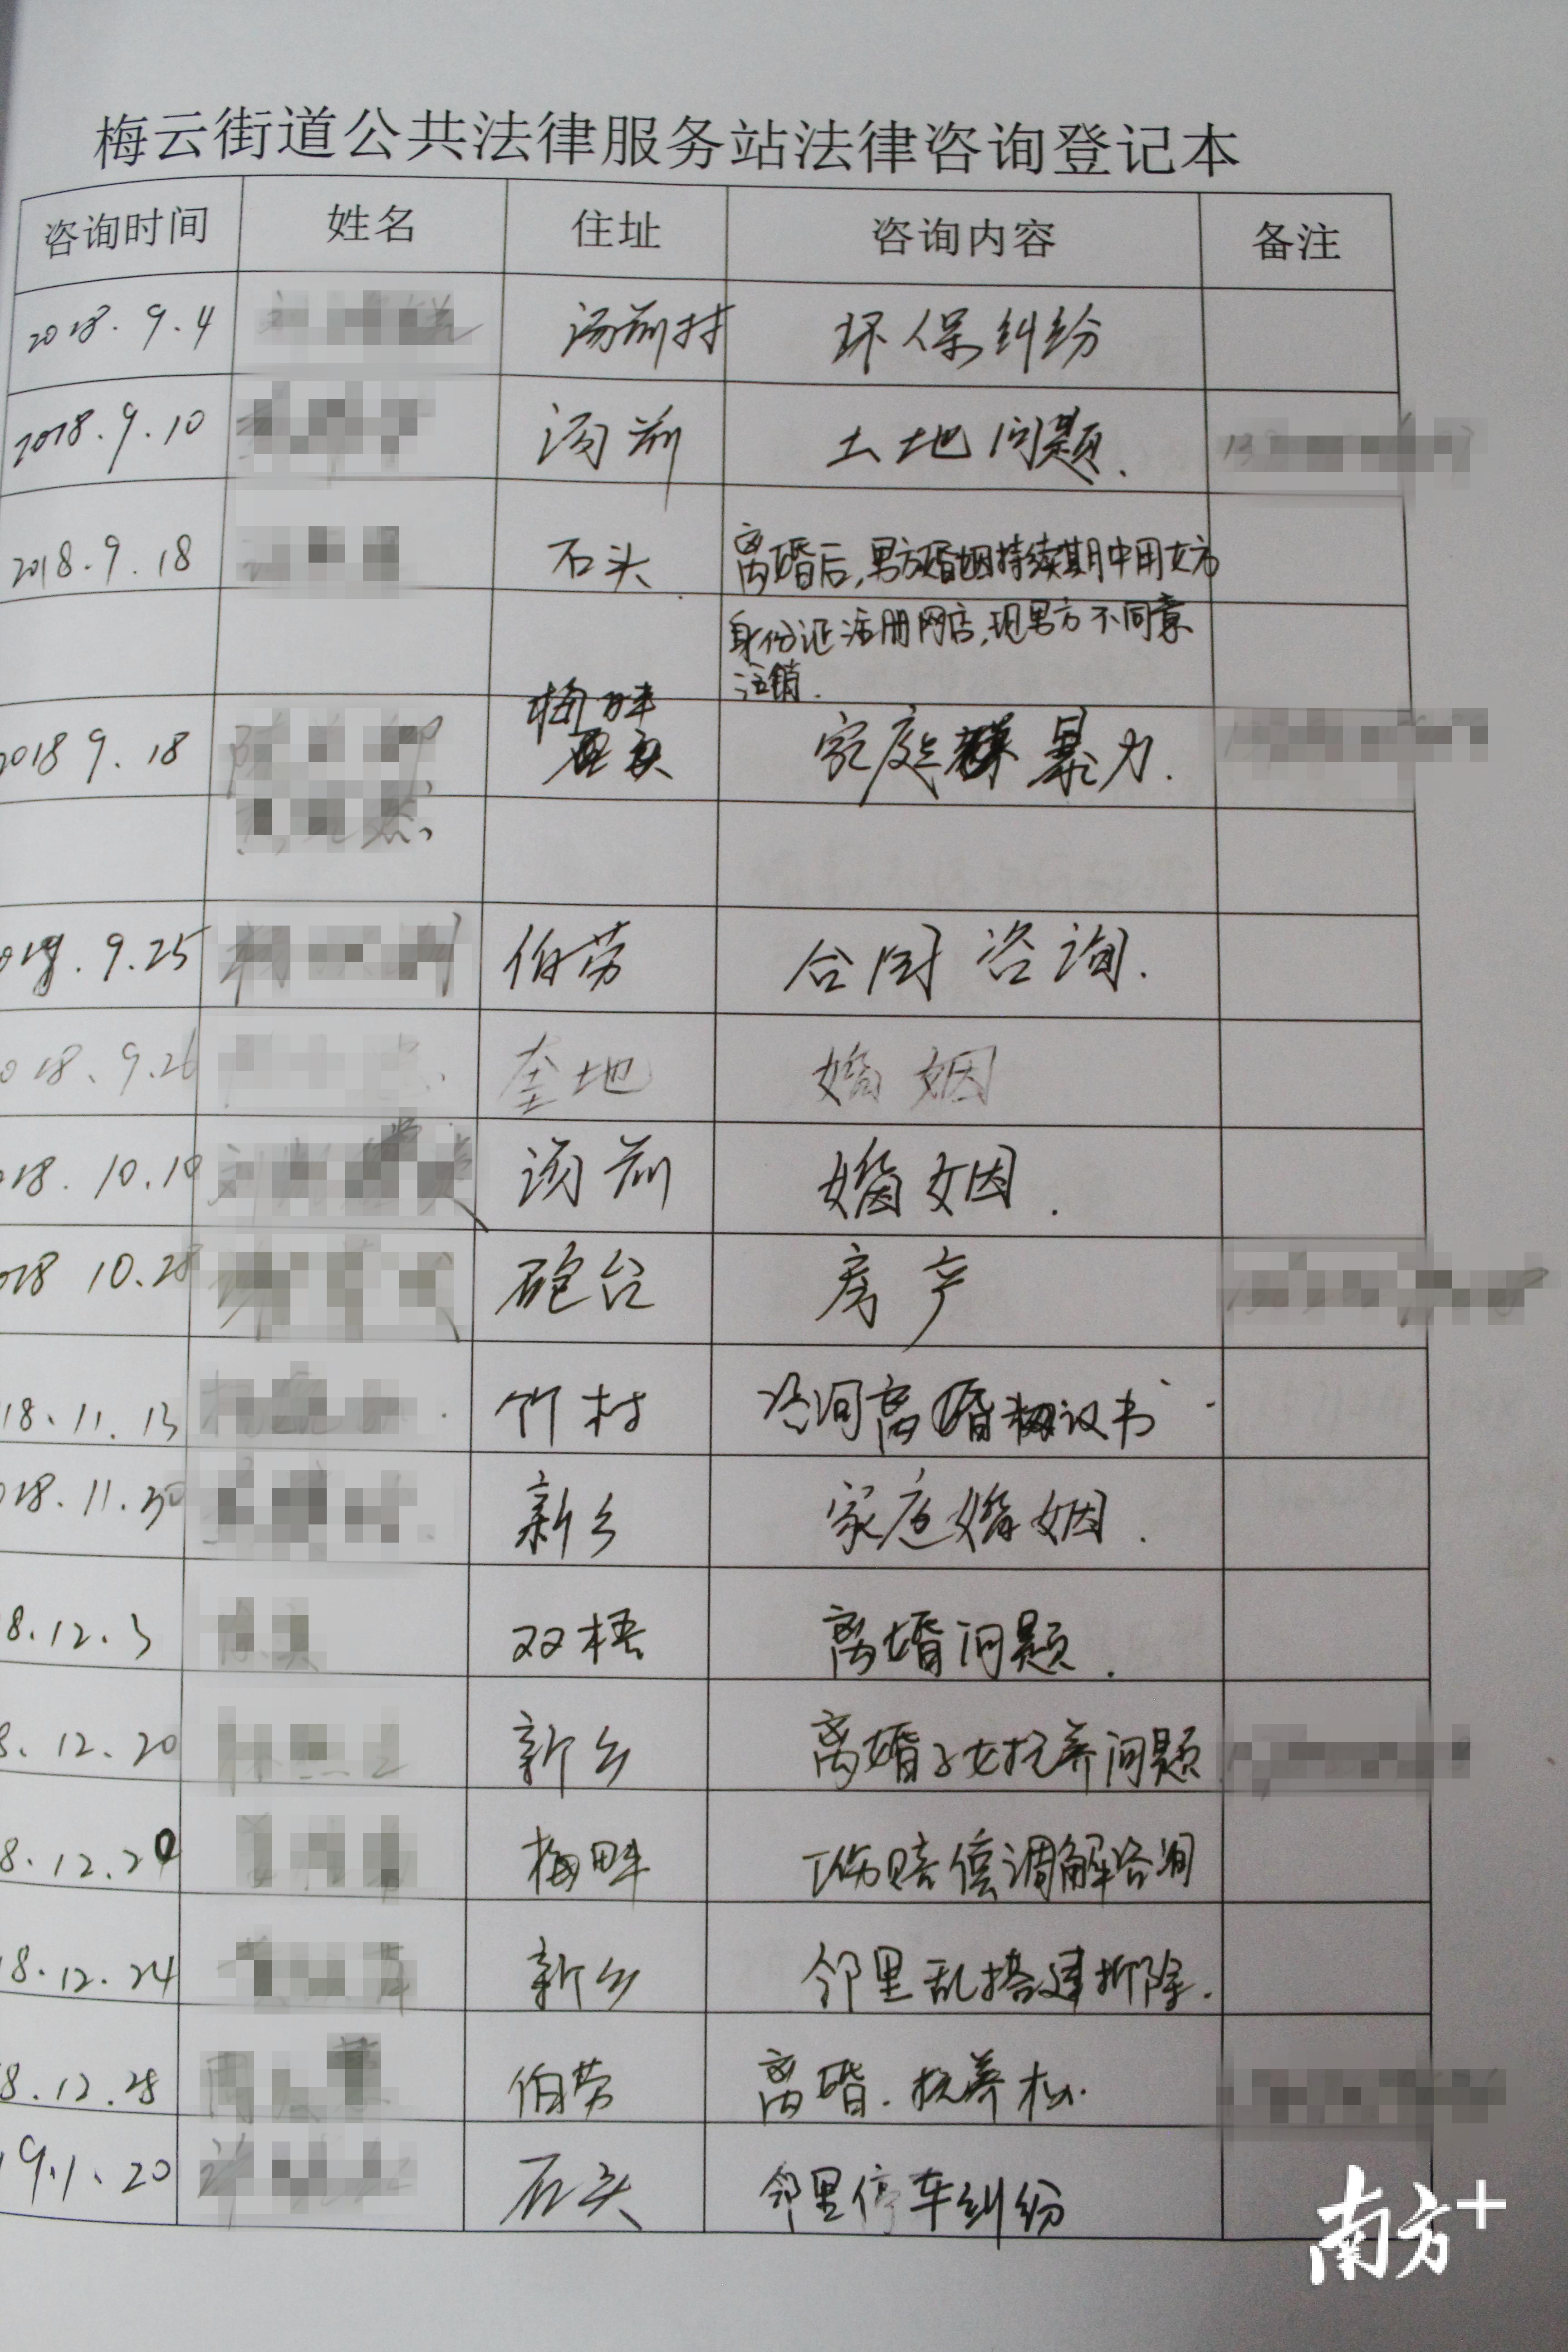 梅云街道公共法律服务站法律咨询登记本
咨询时间 姓名 住址 咨询内容 备注
2018.9.4 汤前村 环保纠纷
2018.9.10 汤前 土地问题.
2018.9.18 石头 离婚后,男方婚姻持续期中用女方
身份证注册网店,现男方不同意
注销.
2018 9.18 梅畔 家庭 暴力.
9.25 伯劳 合同 咨询.
018.9.26 奎地 婚姻
018.10.10 汤前 婚姻.
018 10.28 砲台 房产
18.11.13 竹村 咨询离婚协议书.
018.11.30 新乡 家庭婚姻.
8.12.3 双梧 离婚问题.
8.12.20 新乡 离婚子女抚养问题
8.12.20 梅畔 工伤赔偿调解咨询
8.12.24 新乡 邻里乱搭建拆除.
8.12.28 伯劳 离婚.抚养权.
19.1.20 石头 邻里停车纠纷
南方+